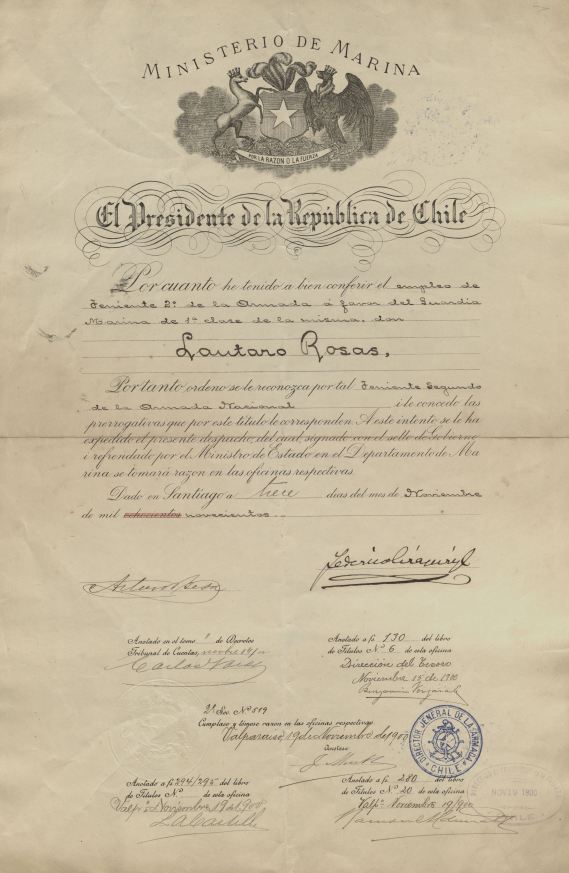 MINISTERIO DE MARINA
POR LA RAZON O LA FUERZA
El Presidente de la República de Chile
Por cuanto he tenido a bien conferir el empleo de
Teniente 2º de la Armada a favor del Guardia
Marina de 1ª clase de la misma, don
Lautaro Rosas,
Por tanto, ordeno se le reconozca por tal Teniente Segundo
de la Armada Nacional i le concedo las
prerrogativas que por este título le corresponden. A este intento se le ha
expedido el presente despacho, del cual, signado con el sello de Gobierno
i refrendado por el Ministro de Estado en el Departamento de Ma
rina se tomará razon en las oficinas respectivas.
Dado en Santiago a trece dias del mes de Noviembre
de mil ochocientos novecientos.
Anotado en el tomo de Decretos
Tribunal de Cuentas,
Anotado a fs 130 del libro
de Títulos Nº 6 de esta oficina
Dirección del Tesoro
Noviembre 15 de 1900
2ª Sec. Nº 519
Cúmplase y tómese razon en las oficinas respectivas
Valparaiso, 19 de Noviembre de 1900
Anotese
DIRECTOR JENERAL DE LA ARMADA
CHILE
Anotado a fs 294/295 del libro
de Títulos Nº de esta oficina
Valpº Noviembre 19 de 1900
Anotado a fs 280 del libro
de Títulos Nº 20 de esta oficina
Valpº Noviembre 19/900
NOV 19 1900